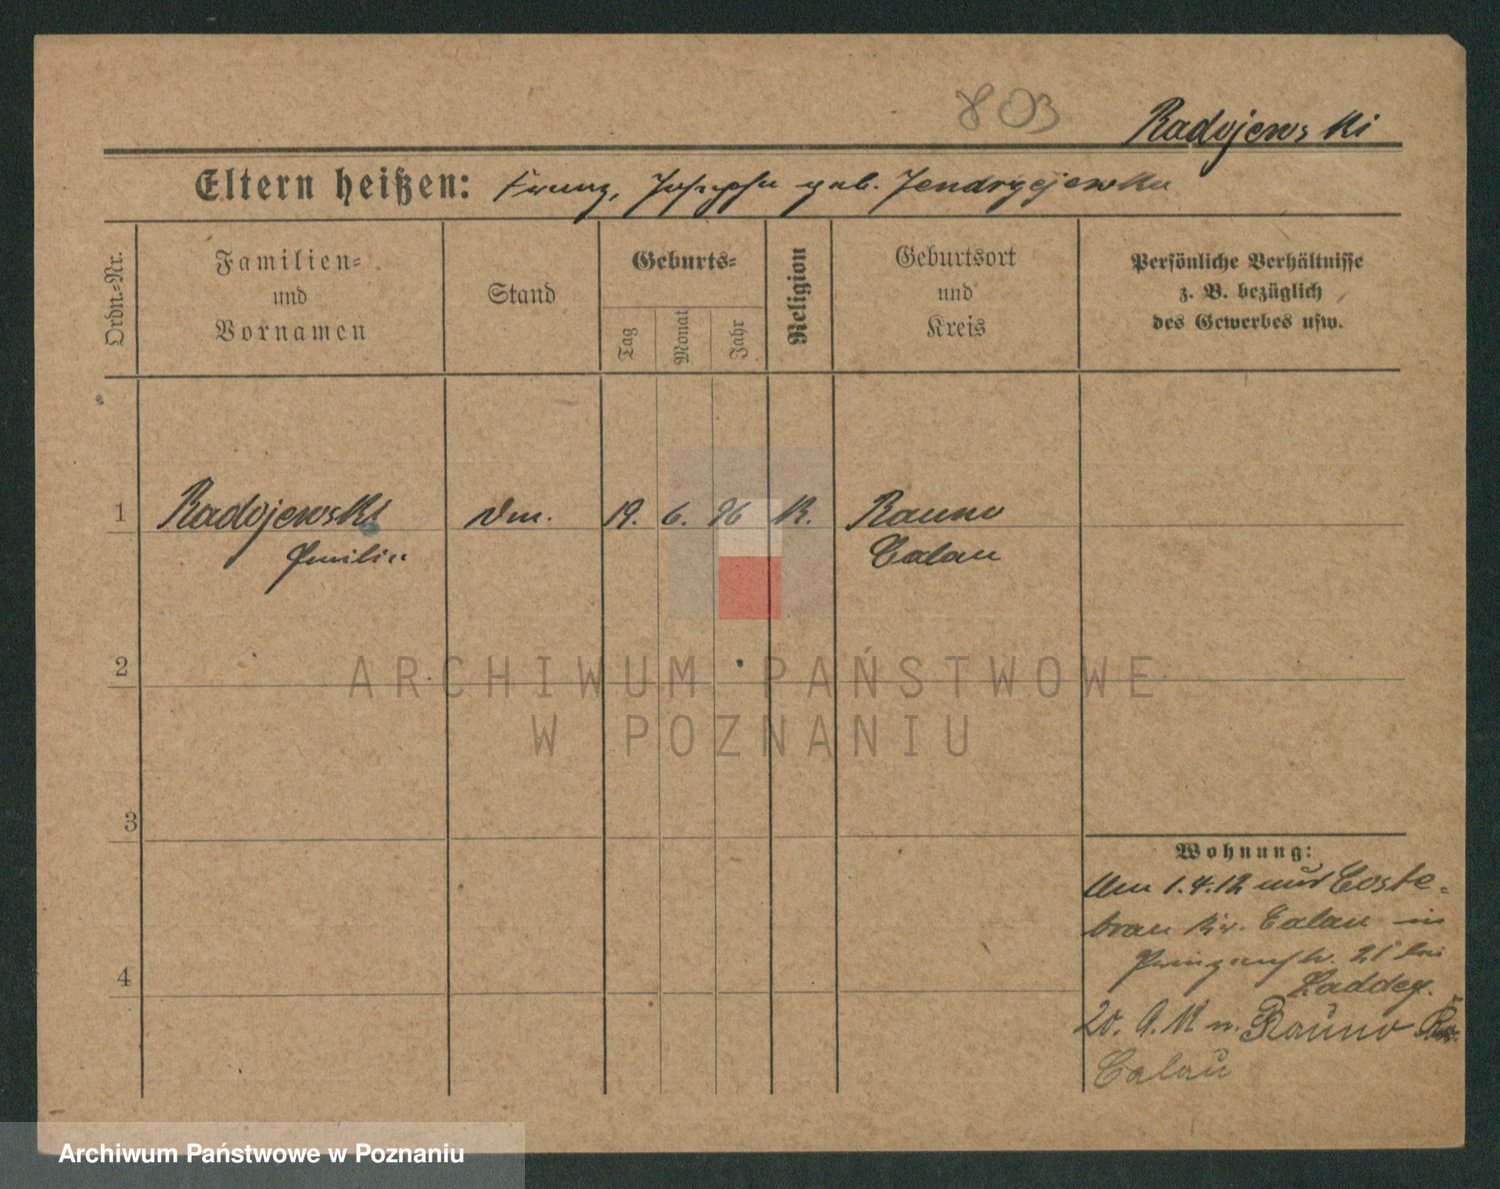 803
Radojewski
Eltern heißen: Franz, Josepha geb. Jendrzejewska
Ordn.-Nr.
Familien-
und
Vornamen
Stand
Geburts-
Tag
Monat
Jahr
Religion
Geburtsort
und
Kreis
Persönliche Verhältnisse
z. B. bezüglich
des Gewerbes usw.
1 Radojewski 19. 6. 96 K. Rauno
Emilie Calau
2
3
4
Wohnung:
1.4.12 aus Coste-
brau Kr. Calau in
21 bei
Laddey.
20. 9. 12 n. Rauno Kr.
Calau
ARCHIWUM PAŃSTWOWE
W POZNANIU
Archiwum Państwowe w Poznaniu